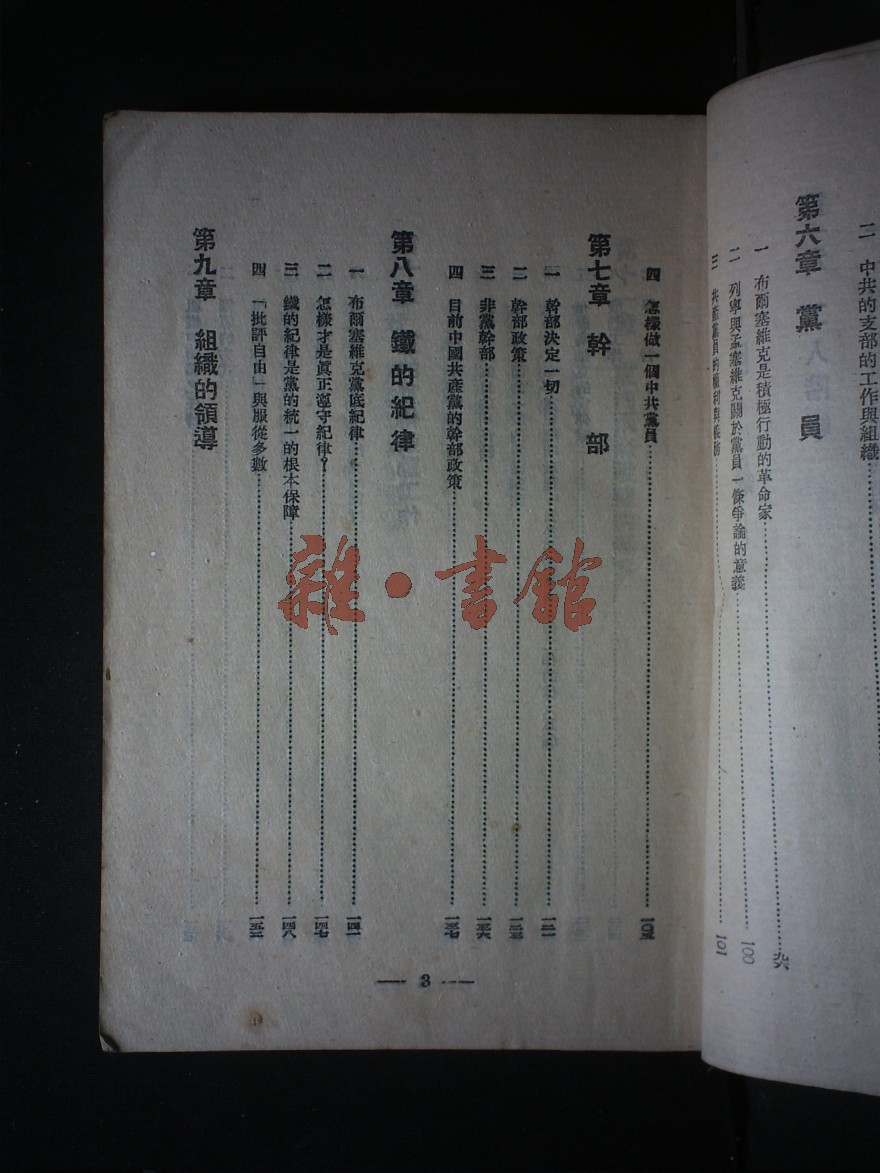 二 中共的支部的工作與組織
第六章 黨員
一 布爾塞維克是積極行動的革命家 九六
二 列寧與孟塞維克關於黨員一條爭論的意義 100
三 共產黨員的權利與義務 101
四 怎樣做一個中共黨員 一〇五
第七章 幹部
一 幹部決定一切
二 幹部政策
三 非黨幹部 一三六
四 目前中國共產黨的幹部政策 一三七
第八章 鐵的紀律
一 布爾塞維克黨底紀律 一四一
二 怎樣才是眞正遵守紀律? 一四七
三 鐵的紀律是黨的統一的根本保障 一四八
四 「批評自由」與服從多數 一五二
第九章 組織的領導
— 3 —
雜·書館